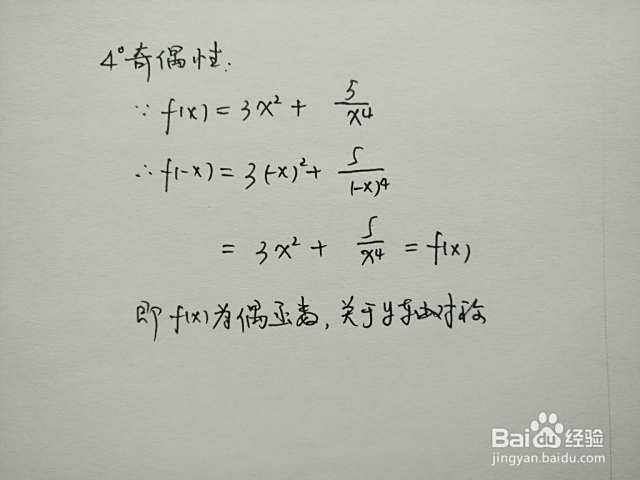 4°奇偶性:
∵ f(x) = 3x² + 5/x⁴
∴ f(-x) = 3(-x)² + 5/(-x)⁴
= 3x² + 5/x⁴ = f(x)
即 f(x)为偶函数,关于y轴对称
Baidu经验
jingyan.baidu.com